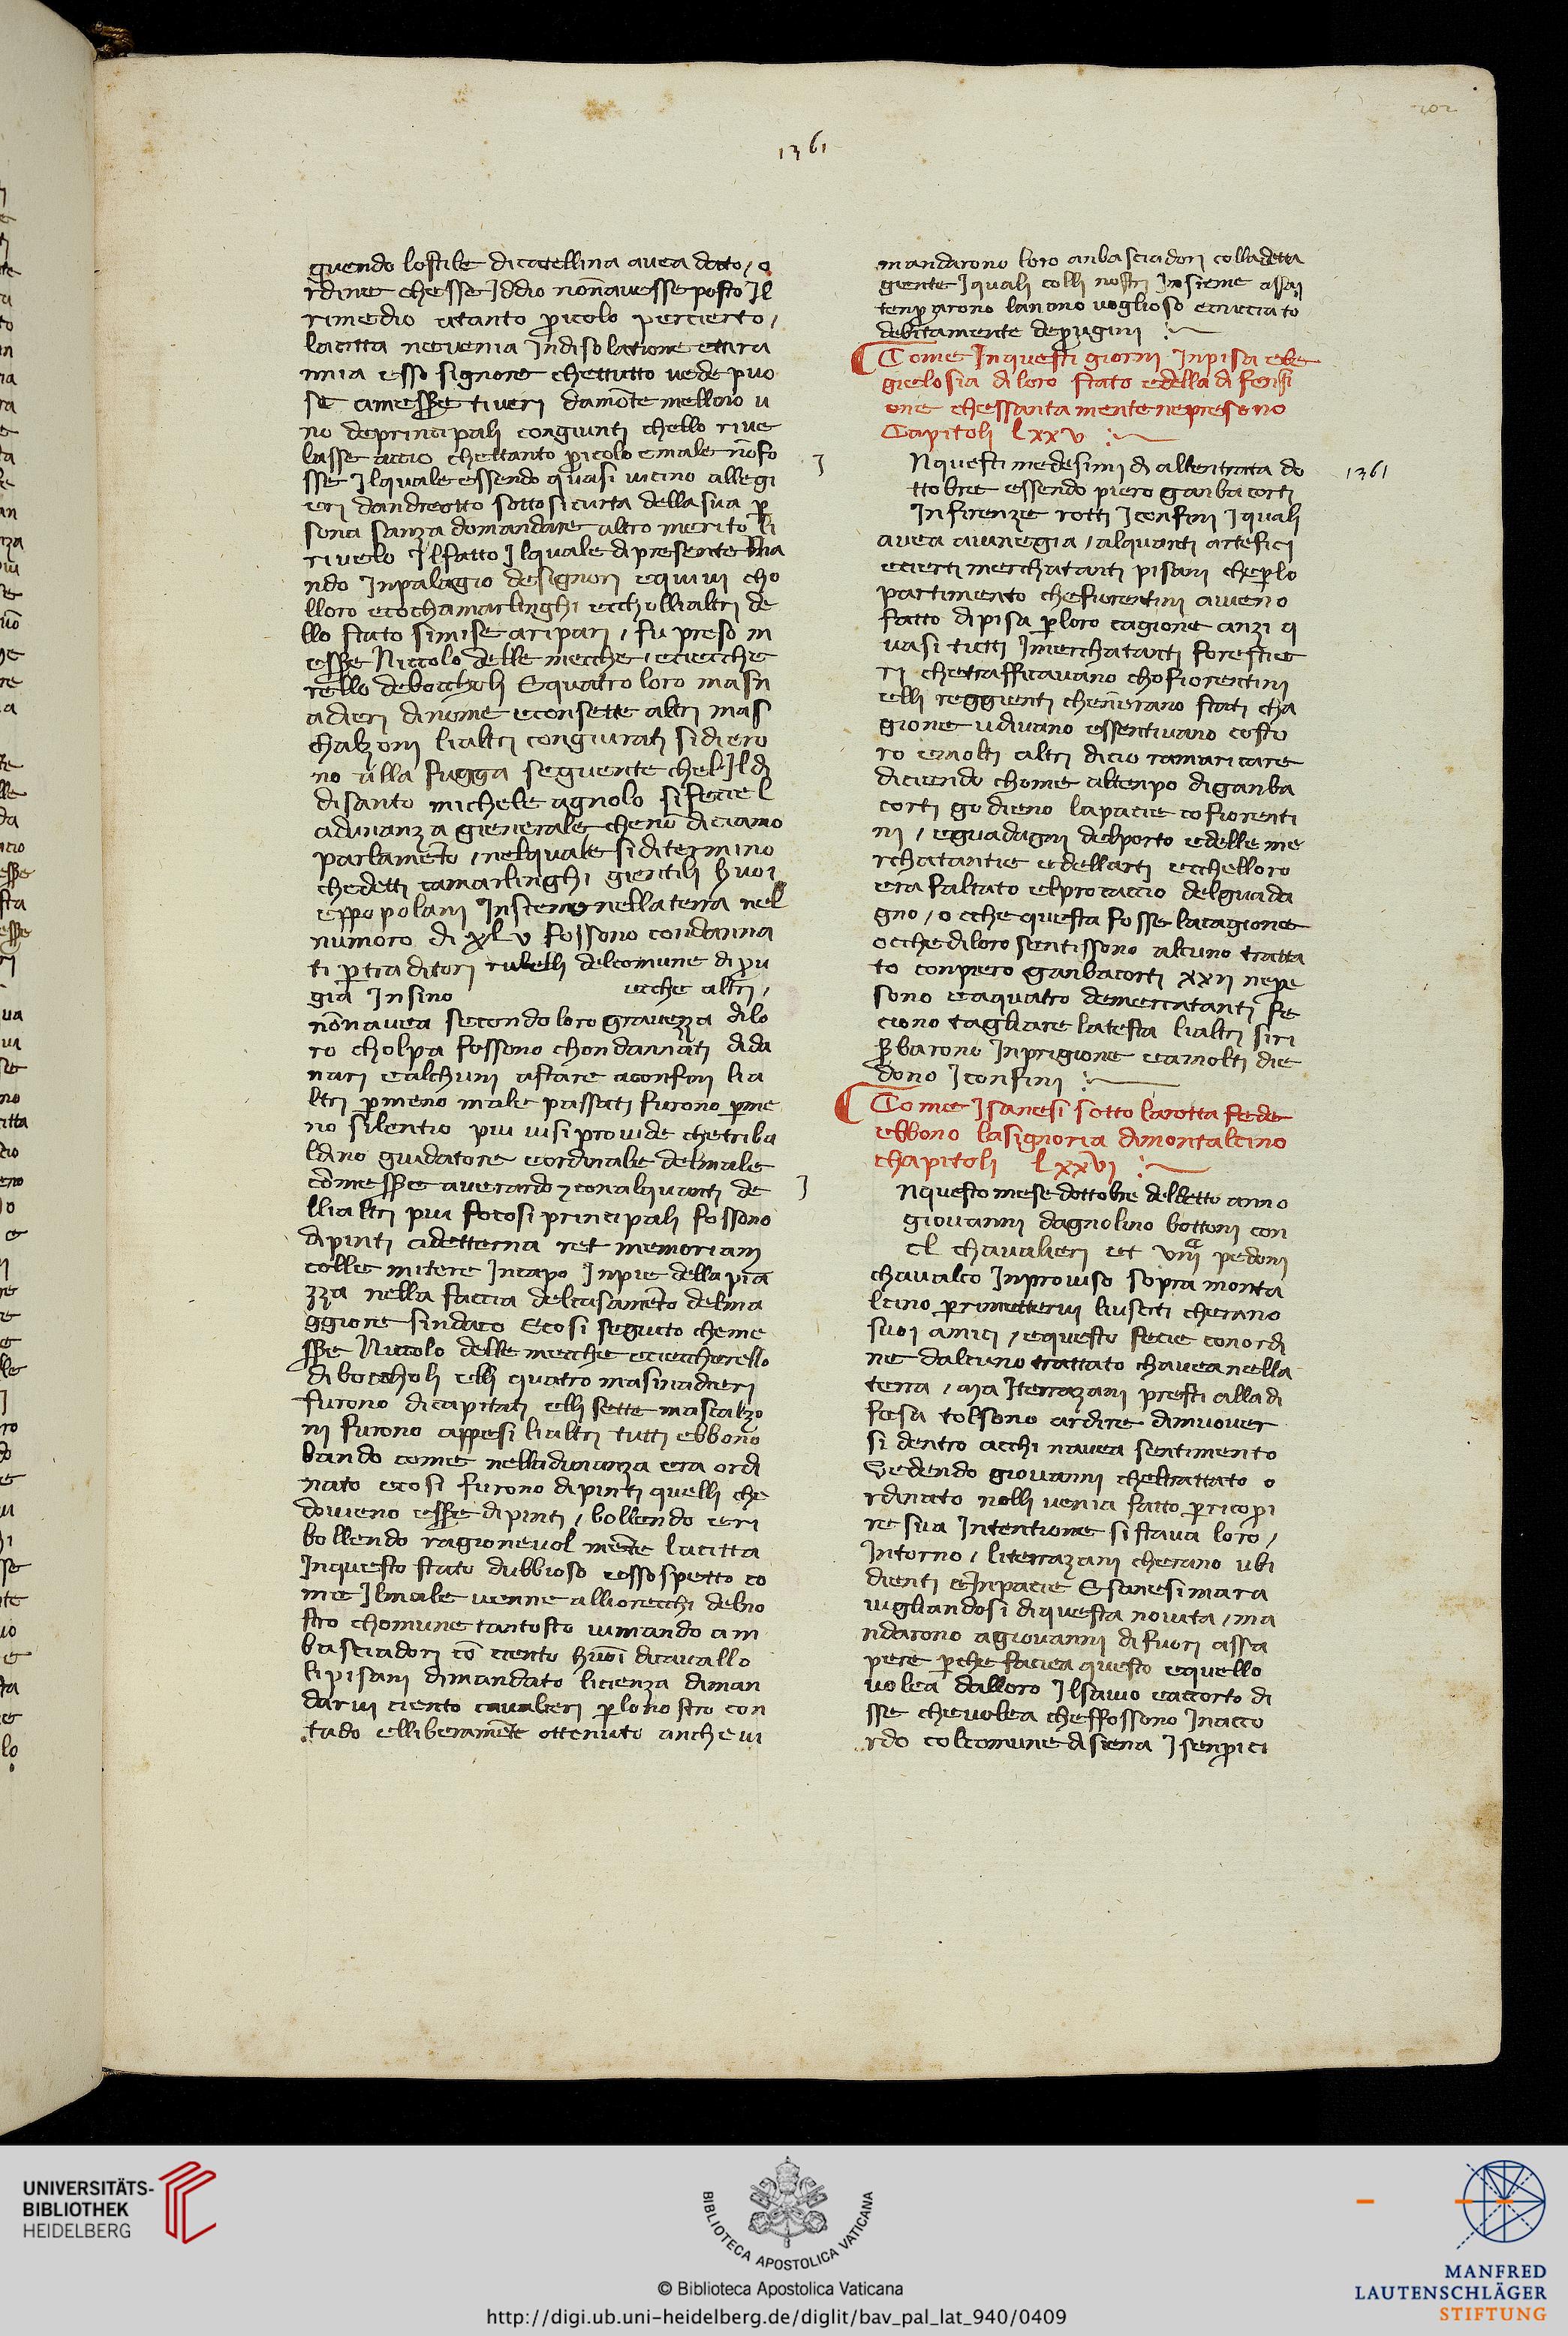 202
1361
guendo lo stile di catellina avea dato / o
rdine chesse Iddio nonavesse posto Il
rimedio atanto pricolo percierto /
lacitta nevenia Indisolatione ettira
nnia esso signore chettutto vede puo
se amesser tiveri damōte melloro u
no deprincipali congiunti chello rive
lasse accio chettanto pricolo emale nōfo
sse Ilquale essendo quasi vicino allegi
eri dandreotto sotto sicurta della sua per
sona sanza domandare altro merito li
rivelo Ilfatto Ilquale dipresente
ndo Inpalagio designori equivi cho
lloro ecochamarlinghi eccholli altri de
llo stato simise aripari / fu preso m
esser Niccolo delle mecche / eciecche
rello debocchōli Equatro loro masn
adieri dinome econsette altri mas
chalzoni lialtri congiurati sidiero
no alla fugga seguente chel Ildi
disanto michele agnolo si feciel
adunanza gienerale chenoi diciamo
parlamēto / nelquale siditermino
chedetti camarlinghi gientili huoi
eppopolani Insieme nella terra nel
numoro di xlv fossono condanna
ti per traditori rubelli delcomune di pru
gia Insino ecche altri /
nōnavea secondo loro gravezza dilo
ro cholpa fossono chondannati dida
nari ealchuni astare aconfini lia
ltri permeno male passati furono perme
no silentio piu visi provide chetriba
ldino guidatore eordinale delmale
cōmesser averardo 7 conalquanti de
lli altri piu focosi principali fossono
dipinti adetterna ret memoriam
colle mitere Incapo Inpie della pia
zza nella faccia delcasamēto delma
ggiore sindaco Ecosi seguito cheme
sser Niccolo delle mecche eciecherello
di bocchōli elli quatro masinadieri
furono dicapitati elli sette mascalzo
ni furono appesi lialtri tutti ebbono
bando come nelladunanza era ordi
nato ecosi furono dipinti quelli che
dovieno essere dipinti / bollendo eri
bollendo ragionevol mēte lacitta
Inquesto stato dubbioso essospetto co
me Ilmale venne alliorecchi delno
stro chomune tantosto vimando am
basciadori cō ciento huoī dicavallo
lipisani dimandato licienza diman
darvi ciento cavalieri perlo nostro con
tado elliberamēte ottenuto anche vi
mandarono loro anbasciadori colladetta
giente Iquali colli nostri Insieme assai
tenprarono lanimo voglioso ecrucciato
debitamente deprugini :~
Come Inquesti giorni Inpisa ebe
gielosia di loro stato edella difensi
one chessantamente nepresono
Capitoli lxxv :~
J Nquesti medesimi di allentrata do 1361
ttobre essendo piero ganbacorti
In firenze rotti Iconfini Iquali
avea avinegia / alquanti artefici
ecierti merchatanti pisani cheperlo
partimento chefiorentini avieno
fatto dipisa perloro cagione anzi q
uasi tutti Imerchatanti forestie
ri chetrafficavano chofiorentini
elli reggienti chen'erano stati cha
gione udivano essentivano costo
ro emolti altri dicio ramaricare
diciendo chome altenpo diganba
corti godieno lapacie cofiorenti
ni / eguadagni delporto edelle me
rchatantie edellarti ecchelloro
era faltato elprocaccio delguada
gno / o cche questa fosse lacagione
occhediloro sentissono alcuno tratta
to conpiero ganbacorti xxii nepre
sono eaquatro demercatanti fe
ciono tagliare latesta lialtri siri
serbarono Inprigione eamolti die
dono Iconfini :~
Come Isanesi sotto larotta fede
ebbono lasignoria dimontalcino
chapitoli lxxvi :~
J Nquesto mese dottobre deldetto anno
giovanni dagnolino bottoni con
cl chavalieri et viiiᶜ pedoni
chavalco Inproviso sopra monta
lcino perrimettervi liusciti cherano
suoi amici / equesto fecie conordi
ne dalcuno trattato chavea nella
terra / ma Iterrazani presti alladi
fesa tolsono ardire dimuover
si dentro acchi navea sentimento
Vedendo giovanni cheltrattato o
rdinato nolli venia fatto perricopri
re sua Intentione sistava loro /
Intorno / literrazani cherano ubi
dienti eInpacie Esanesi mara
vigliandosi diquesta novita / ma
ndarono agiovanni difuori assa
pere perche faciea questo equello
volea dalloro Ilsavio eaccorto di
sse chevolea cheffossono Inacco
rdo colcomune di siena Isenprici
UNIVERSITÄTS-
BIBLIOTHEK
HEIDELBERG
BIBLIOTECA APOSTOLICA VATICANA
© Biblioteca Apostolica Vaticana
http://digi.ub.uni-heidelberg.de/diglit/bav_pal_lat_940/0409
MANFRED
LAUTENSCHLÄGER
STIFTUNG